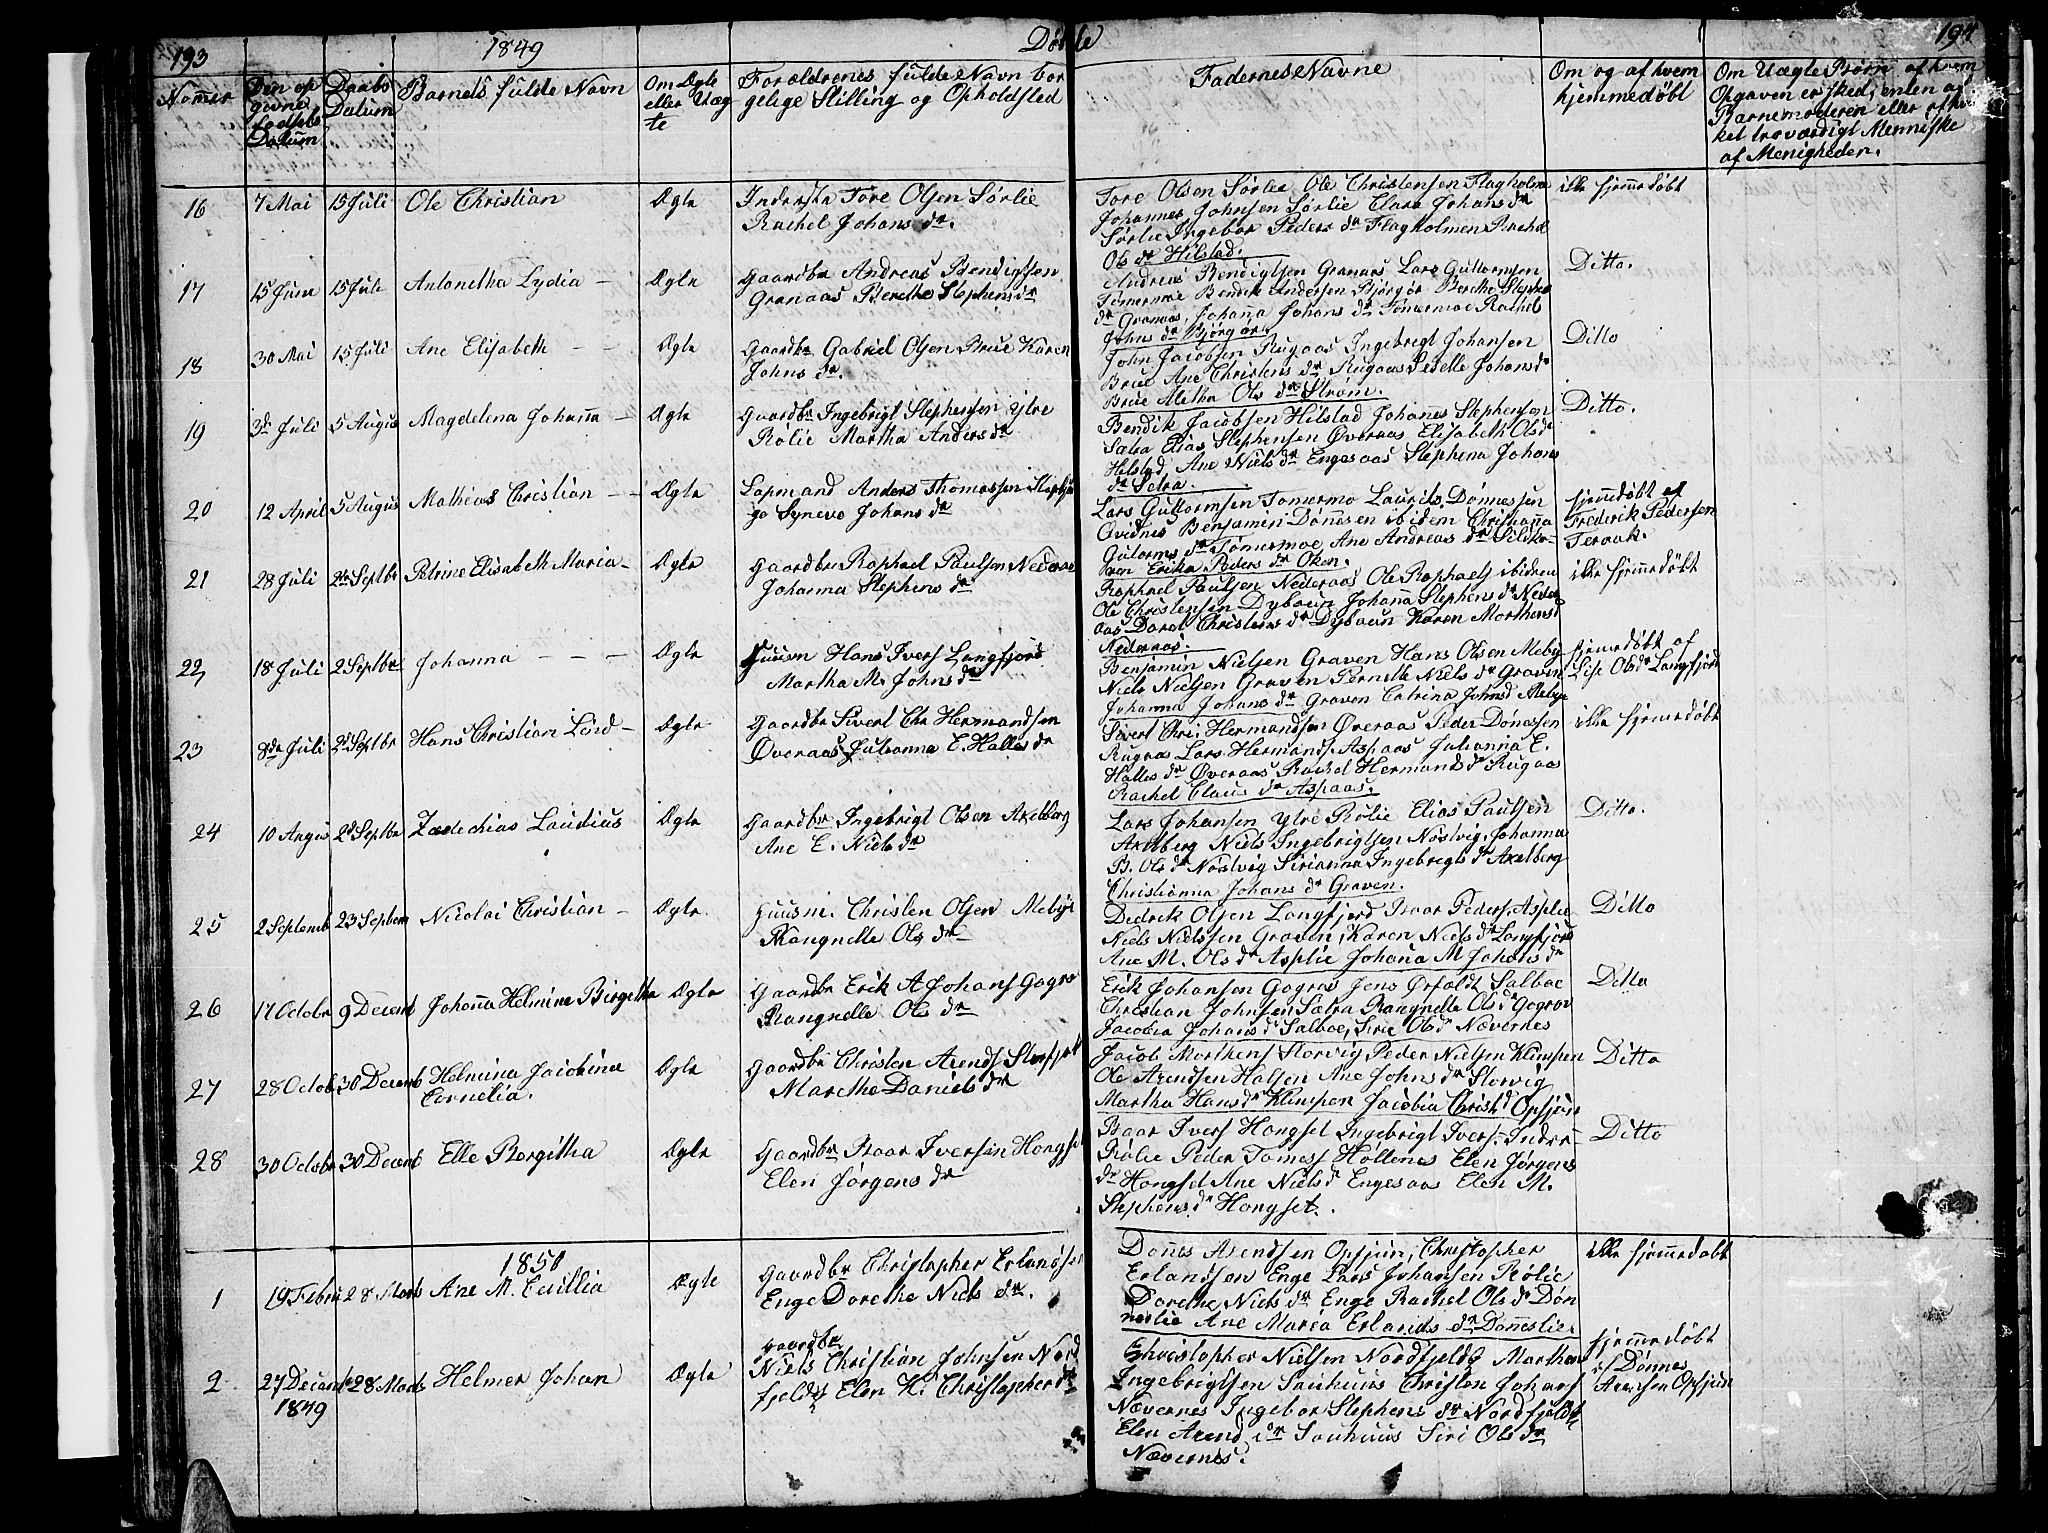 193
1849
Døbte
194
Nomer
Den op
givne
fødsels
Datum
Daabs
Datum
Barnets fulde Navn
Om Ægte
eller Uæg
te
Forældrenes fulde Navn bor
gelige Stilling og Opholdsted
Faddernes Navne
Om og af hvem
hjemmedøbt
Om Uægte Børn af hvem
Opgaven er sked, enten af
Barnemoderen eller af hvi
ket troværdigt Menniske
af Menigheden.
16 7 Mai 15 Juli Ole Christian Ægte
Inderste Tore Olsen Sørlie
Rachel Johans dr.
Tore Olsen Sørlie Ole Christensen Flagholmen
Johannes Johnsen Sørlie Clara Johans dr
Sørlie Ingebor Peders dr Flagholmen Rachel
Ols dr Hilstad.
ikke hjemedøbt
17 15 Juni 15 Juli Antonetha Lydia Ægte
Gaardbr Andreas Bendigtsen
Granaas Berethe Stephens dr
Andreas Bendigtsen Granaas Lars Guttormsen
Tømermoe Bendik Andersen Bjørgør Berethe Stephens
dr Granaas, Johanna Johans dr Tømermoe Rachel
Johns dr Bjørgør
Ditto.
18 30 Mai 15 Juli Ane Elisabeth Ægte
Gaardbr Gabriel Olsen Brue Karen
Johns dr.
John Jacobsen Rugaas Ingebrigt Johansen
Brue Ane Christens dr Rugaas Sedelle Johans dr
Brue Metha Ols dr Strøm.
Ditto
19 3de Juli 5 Augus Magdelena Johanna Ægte
Gaardbr Ingebrigt Stephensen Ytre
Rølie Martha Anders dr
Bendik Jacobsen Hilstad Johannes Stephensen
Sætra Elias Stephensen Øveraas Elisabeth Ols dr
Hilstad Ane Niels dr Engesaas Stephena Johans
dr Sætra.
Ditto.
20 12 April 5 Augus Mathias Christian Ægte
Lapmand Anders Thomassen
Synevo Johans dr
Lars Guttormsen Tømermo Laurids Dønnessen
Qvidnes Benjamin Dønnesen ibidem Christianna
Gutorms dr Tømermoe Ane Andreas dr
Erika Peders dr
hjemedøbt af
Frederik Pedersen
Teraak.
21 28 Juli 2de Septbr Petrine Elisabeth Maria Ægte
Gaardbr Raphael Paulsen Nederaas
Johanna Stephens dr
Raphael Paulsen Nederaas Ole Raphaels ibidem
Ole Christensen Dybvein Johanna Stephens dr Neder
aas Doret Christens dr Dybvein Karen Morthensd
Nederaas.
ikke hjemedøbt
22 18 Juli 2 Septbr Johanna Ægte
Huusm Hans Ivers Langfjord
Martha M. Johns dr
Benjamin Nielsen Graven Hans Olsen Meby
Niels Nielsen Graven Pernille Niels dr Graven
Johanna Johans dr Graven Catrina Johnsd Mebye
hjemedøbt af
Lise Ols dr Langfjord
23 8de Juli 2de Septbr Hans Christian Lind Ægte
Gaardbr Sivert Chr Hermandsen
Øveraas Julianna E. Halles dr
Sivert Chr. Hermandsen Øveraas Peder Dønassen
Rugaas Lars Hermands. Aspaas Julianna E.
Halles dr Øveraas Rachel Hermands dr Rugaas
Rachel Claus dr Aspaas.
ikke hjemedøbt
24 10 Augus 2de Septbr Zadechias Laudius Ægte
Gaardbr Ingebrigt Olsen Axelberg
Ane E. Niels dr
Lars Johansen Ytre Rølie Elias Paulsen
Axelberg Niels Ingebrigtsen Nøstvig Johanna
B. Ols dr Nøstvig Sirianna Ingebrigts dr Axelberg
Christianna Johans dr Graven.
Ditto.
25 2 Septemb 23 Septem Nicolai Christian Ægte
Huusm. Christen Olsen Mebye
Rangnelle Ols dr
Didrik Olsen Langfjord Ivar Peders. Asplie
Niels Nielssen Graven, Karen Niels dr Langfjord
Ane M. Ols dr Asplie Johana M Johans dr
Ditto
26 17 Octobr 9 Decemb Johanna Helmine Birgetha Ægte
Gaardbr Erik A Johans Gogro
Rangnelle Ols dr
Erik Johansen Gogrov Jens Ørfoldt Salboe
Christian Johnsen Sætra Rangnelle Ols dr Gogrov
Jacobia Johans dr Salboe, Sirie Ols dr Nævernes
Ditto
27 28 Octob 30 Decemb Helmina Jacobina
Cornelia. Ægte
Gaardbr Christen Arends Storfjeld
Marethe Daniels dr
Jacob Morthens Storvig Peder Nielsen Klimpen
Ole Arendsen Halsen Ane Johns dr Storvig
Martha Hans dr Klimpen Jacobia Christ dr Opsjøn
Ditto
28 30 Octobr 30 Decemb Elle Bergitha Ægte
Gaardbr Baar Iversen Hongset
Elen Jørgens dr
Baar Ivers Hongset Ingebrigt Ivers. Indre
Rølie Peder Tomass Hollenes Elen Jørgens
dr Hongset Ane Niels dr Engesaas Elen M.
Stephens dr Hongset.
Ditto
1850
1 19 Febru 28 Marts Ane M. Cecillia Ægte
Gaardbr Christopher Erlandsen
Enge Dorethe Niels dr.
Dønnes Arendsen Opsjøn, Christopher
Erlandsen Enge Lars Johansen Rølie
Dorethe Niels dr Enge Rachel Ols dr Døn
neslie Ane Maria Erlands dr Dønneslie.
ikke hjemedøbt
2 27 Decemb 28 Marts Helmer Johan Ægte
1849
Gaardbr
Niels Christian Johnsen Nord
fjeldt Elen K. Christopher dr
Christopher Nielsen Nordfjeldt Marthen
Ingebrigtsen Sauhuus Christen Johans
Nævernes Ingebor Stephens dr Nordfjeldt
Elen Arend dr Sauhuus Siri Ols dr
Nævernes.
hjemmedøbt
af Dønnes
Arendsen Opsjøn